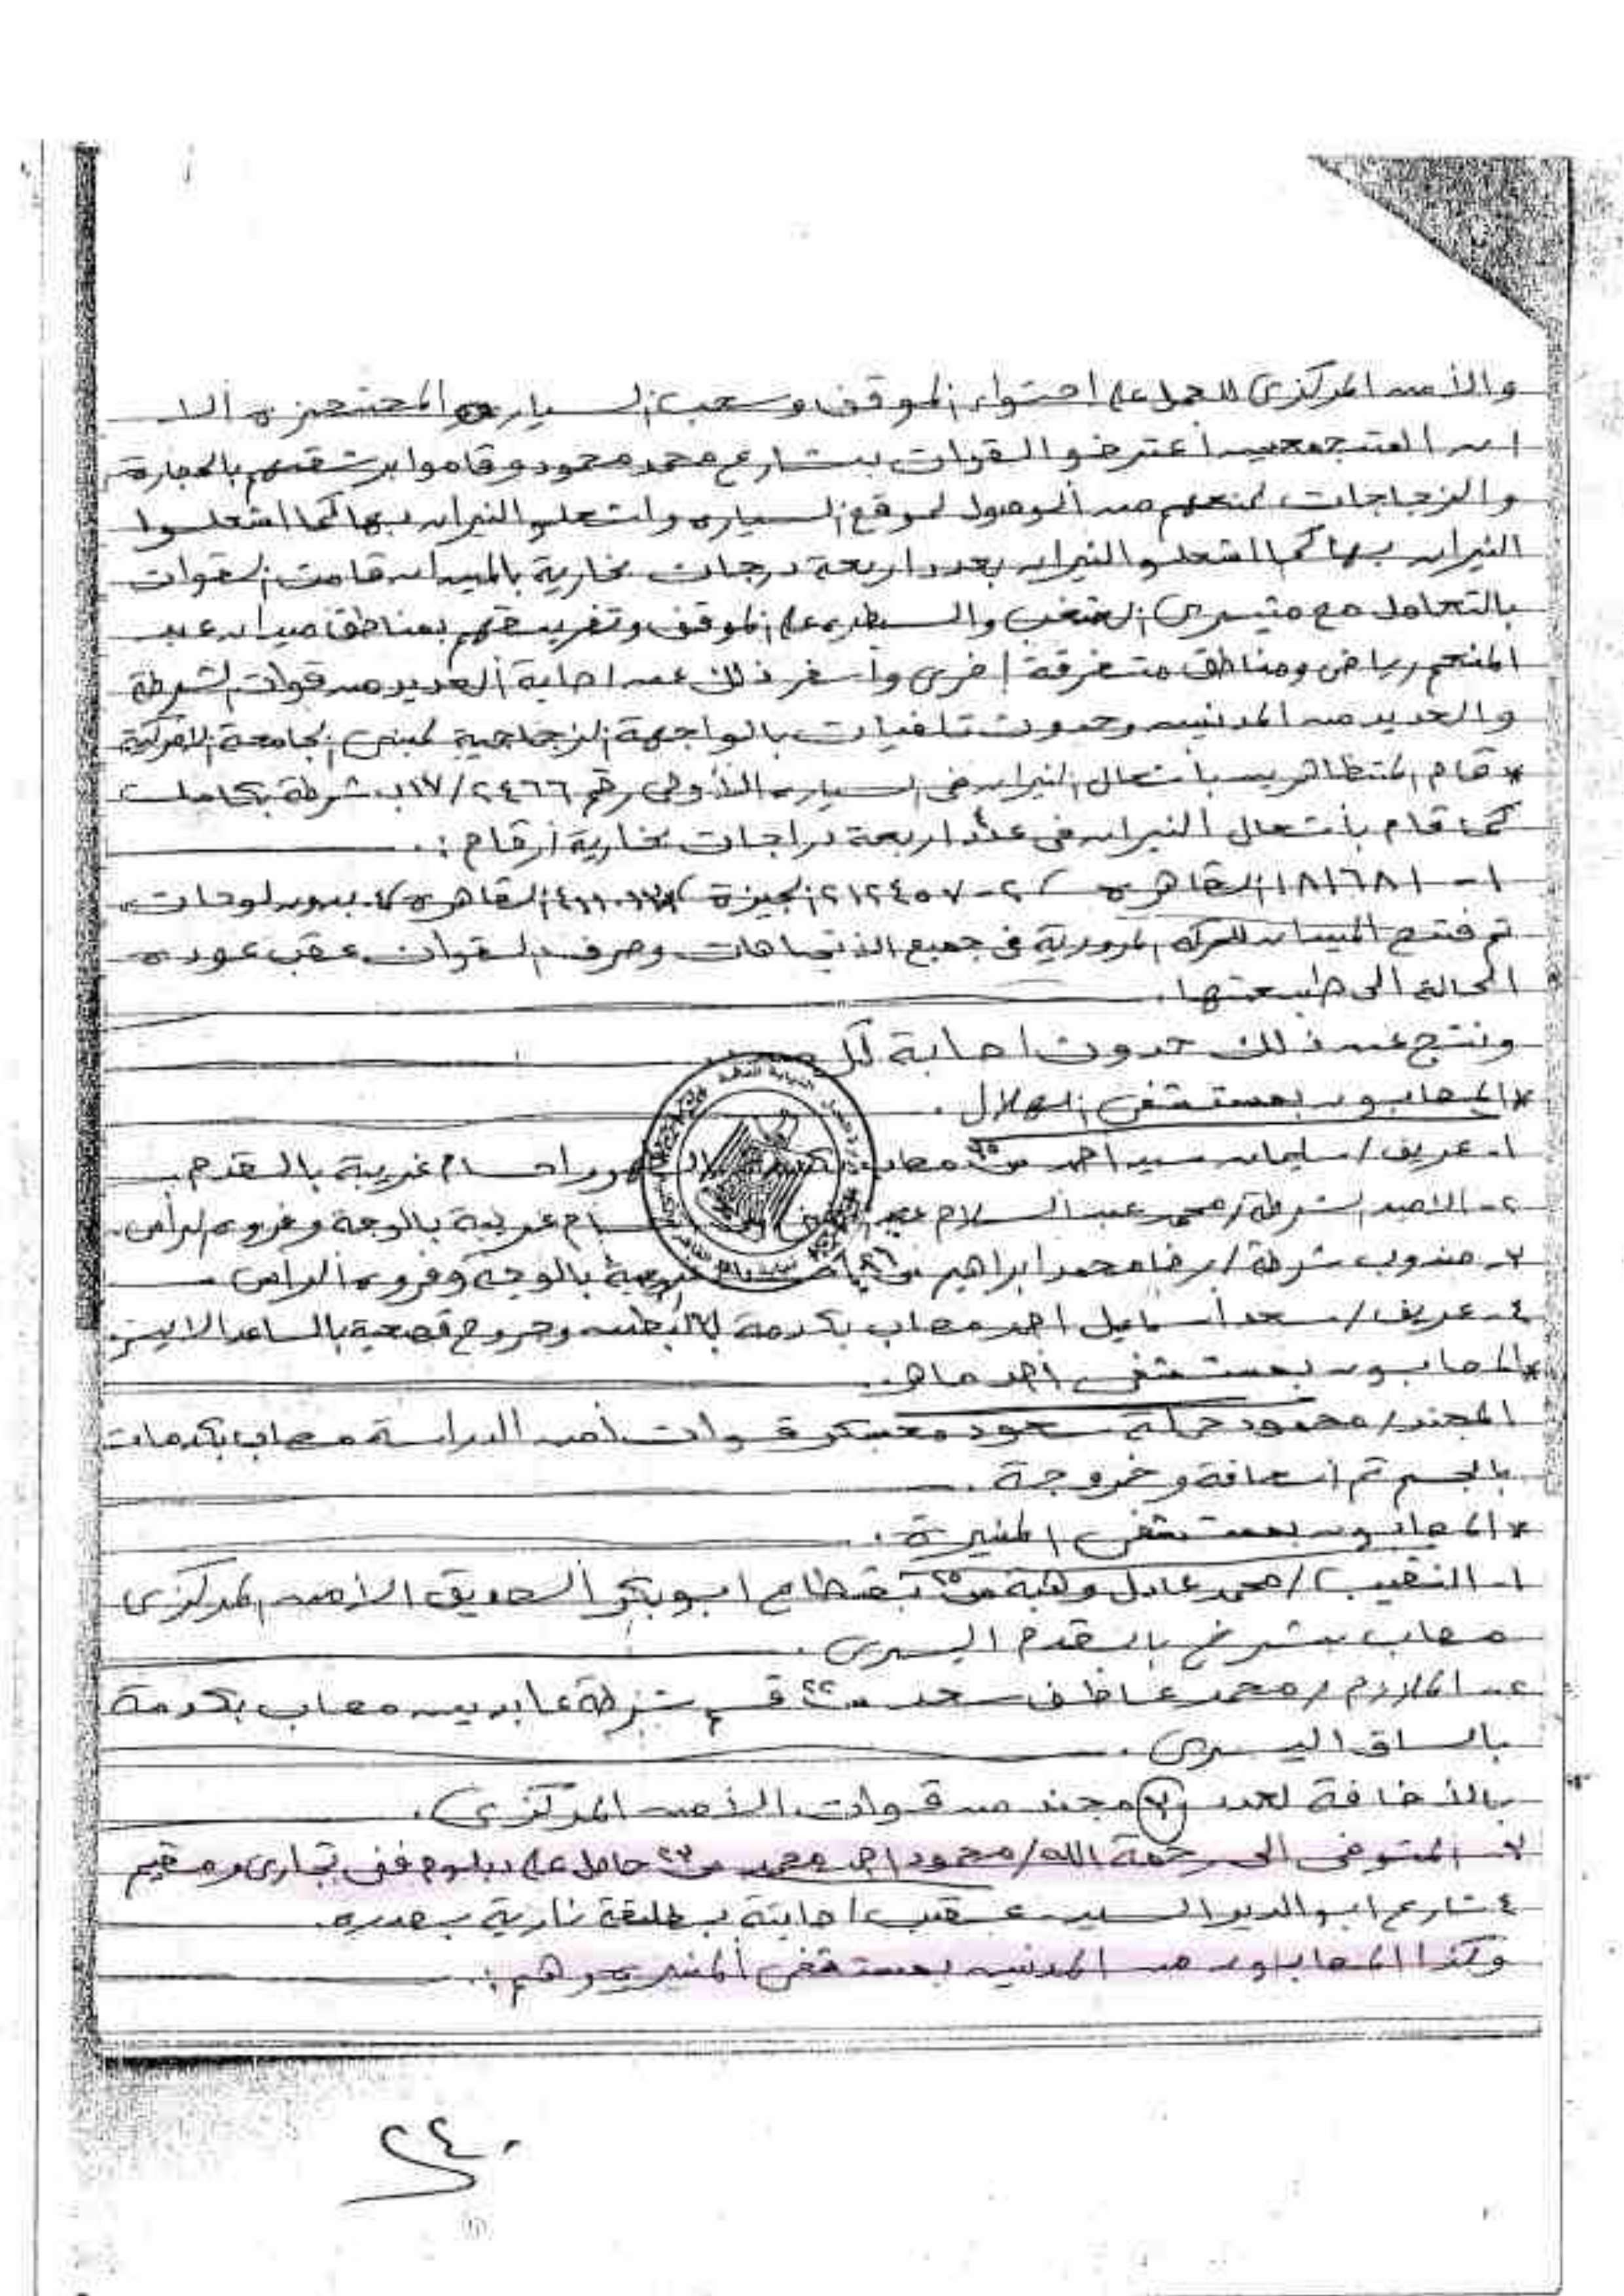 والأمن المركزى للعمل على احتواء الموقف وسحب السياره المحتجزه الا
ان المتجمعين أعترضو القوات بشارع محمد محمود وقاموا برشقهم بالحجارة
والزجاجات لمنعهم من الوصول لموقع السياره واشعلو النيران بها كما اشعلوا
النيران بها كما اشعلو النيران بعدد اربعة درجات بخارية بالميدان قامت القوات
بالتعامل مع مثيرى الشغب والسيطره على الموقف وتفريقهم بمناطق ميدان عبد
المنعم رياض ومناطق متفرقة اخرى وأسفر ذلك عن اصابة العديد من قوات الشرطة
والعديد من المدنين وحدوث تلفيات بالواجهة الزجاجية لمبنى الجامعة الامركية
* قام المتظاهرين بأشعال النيران فى السياره الأولى رقم ٢٤٦٦/١٧ب شرطة بكاملها
كما قام بأشعال النيران فى عدد اربعة دراجات بخارية أرقام :.
١- ١٨١٦٨١ القاهره ٢- ٢١٢٤٥٧ الجيزة القاهره ٤. بدون لوحات
تم فتح الميدان للحركه المرورية فى جميع الاتجاهات وصرف القوات عقب عوده
الحالة الى طبيعتها.
ونتج عن ذلك حدوث اصابة كل من
* المصابون بمستشفى الهلال .
١- عريف / سليمان سيد احمد مصاب بالظهر واحسام غريبة بالقدم .
٢- الامين الشرطة / محمد عبد السلام غريبة بالوجة وفروه الرأس .
٣- مندوب شرطة / رضا محمد ابراهيم بالوجة وفروه الراس
٤- عريف / سعد أسماعيل احمد مصاب بكدمة بالبطن وجروح قطعية بالساعد الايسر
* المصابون بمستشفى أحمد ماهر .
المجند / محمود سعود معسكر قوات أمن الدراسة مصاب بكدمات
بالجسم تم أسعافة وخروجة .
* المصابون بمستشفى المنيرة .
١- النقيب / محمد عادل وهبة س ٢٥ بقطاع ابو بكر الصديق الأمن المركزى
مصاب بشرخ بالقدم اليسرى .
٢- الملازم / محمد عاطف سعد س ٢٢ قسم شرطة عابدين مصاب بكدمة
بالساق اليسرى .
بالأضافة لعدد مجند من قوات الأمن المركزى .
٣- المتوفى الى رحمة الله / محمود احمد محمد س ٢٣ حاصل على دبلوم فنى تجارى ومقيم
٤ شارع ابو السيد عقب اصابتة بطلقة نارية بصدره .
وكذا المصابون من المدنين بمستشفى المنيره وهم :.
٢٤